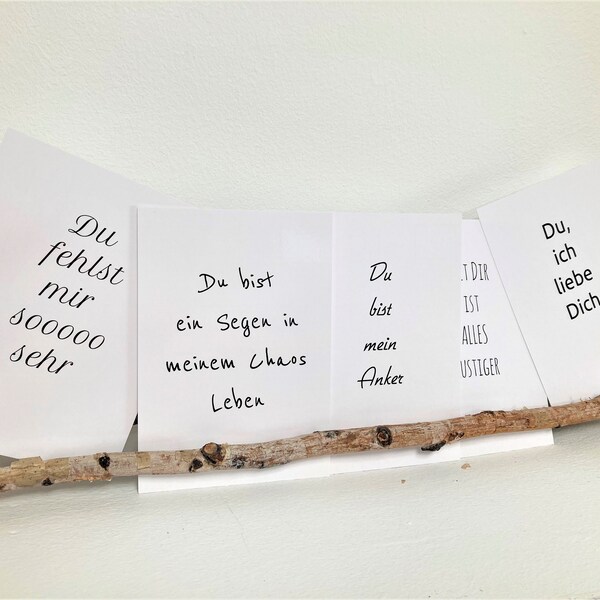 Du
fehlst
mir
sooooo
sehr
Du bist
ein Segen in
meinem Chaos
Leben
Du
bist
mein
Anker
DIR
IST
ALLES
Du,
ich
liebe
Dich